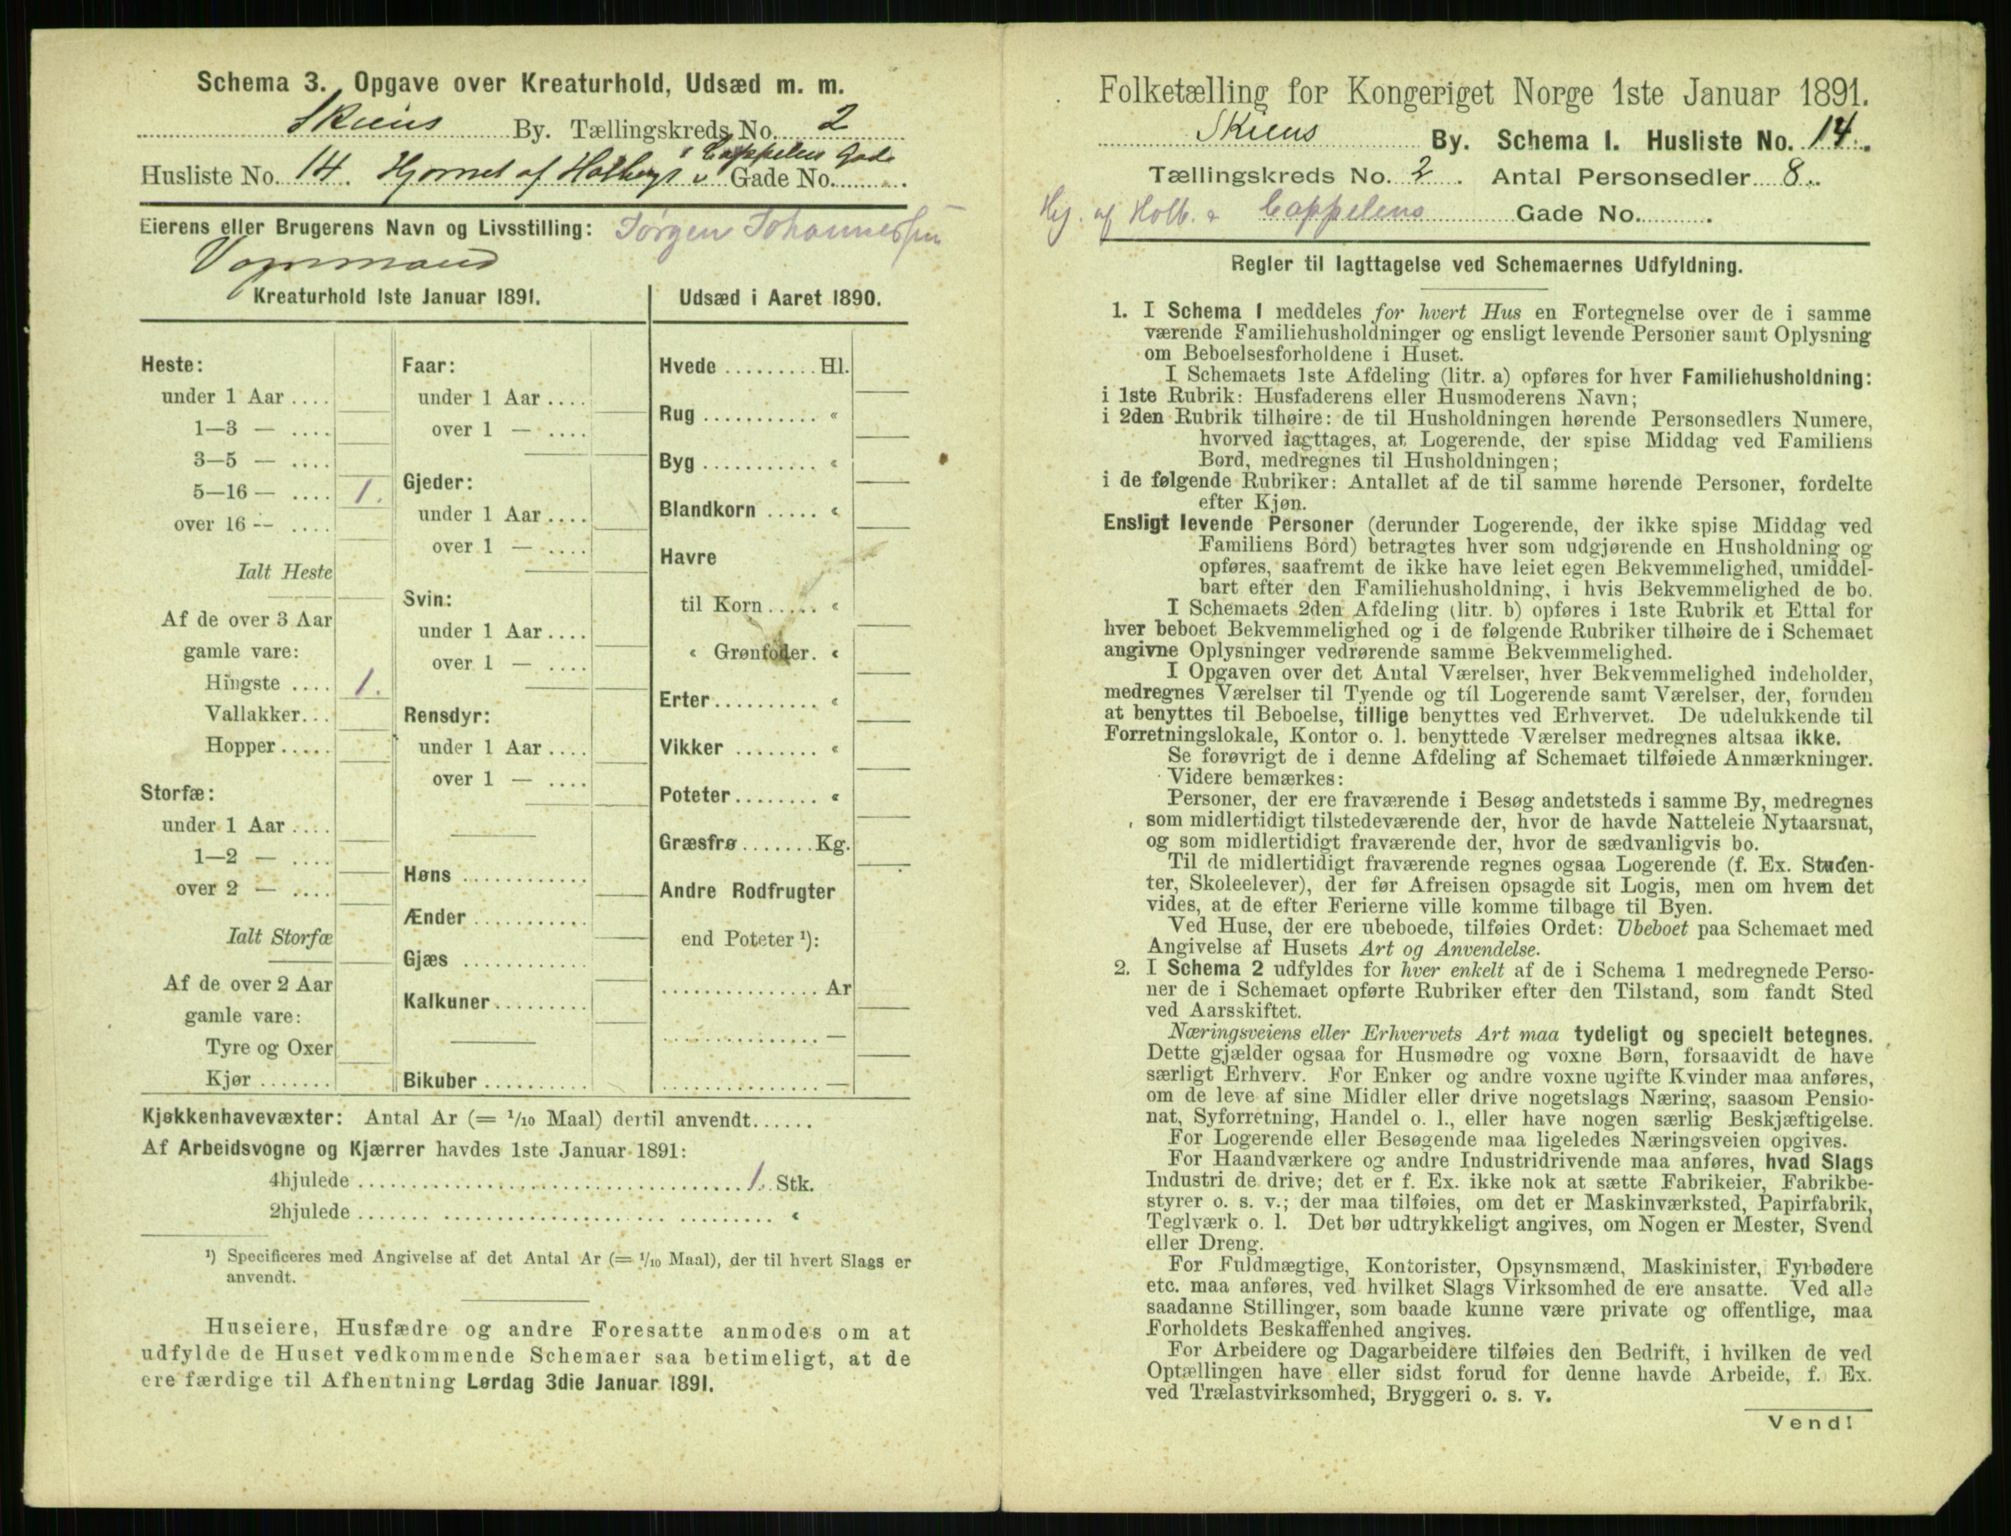 Schema 3. Opgave over Kreaturhold, Udsæd m. m.
Skiens By. Tællingskreds No. 2
Husliste No. 14. Hjørnet af Holbergs & Cappelens Gade Gade No. .
Eierens eller Brugerens Navn og Livsstilling: Jørgen Johannessen
Vognmand
Kreaturhold 1ste Januar 1891.
Heste:
under 1 Aar ....
1—3 — ....
3—5 — ....
5—16 — .... 1.
over 16 — ....
Ialt Heste
Af de over 3 Aar
gamle vare:
Hingste .... 1.
Vallakker...
Hopper.....
Storfæ:
under 1 Aar ....
1—2 — ....
over 2 — ....
Ialt Storfæ
Af de over 2 Aar
gamle vare:
Tyre og Oxer
Kjør.......
Faar:
under 1 Aar ....
over 1 — ....
Gjeder:
under 1 Aar....
over 1 — ....
Svin:
under 1 Aar....
over 1 — ....
Rensdyr:
under 1 Aar....
over 1 — ....
Høns ............
Ænder ...........
Gjæs ............
Kalkuner.........
Bikuber..........
Udsæd i Aaret 1890.
Hvede ......... Hl.
Rug ........... «
Byg ........... «
Blandkorn ..... «
Havre
til Korn ..... «
« Grønfoder. «
Erter.......... «
Vikker ........ «
Poteter........ «
Græsfrø....... Kg.
Andre Rodfrugter
end Poteter ¹):
............... Ar
............... —
............... —
Kjøkkenhavevæxter: Antal Ar (= 1/10 Maal) dertil anvendt......
Af Arbeidsvogne og Kjærrer havdes 1ste Januar 1891:
4hjulede .................................. 1. Stk.
2hjulede .................................. «
¹) Specificeres med Angivelse af det Antal Ar (= 1/10 Maal), der til hvert Slags er
anvendt.
Huseiere, Husfædre og andre Foresatte anmodes om at
udfylde de Huset vedkommende Schemaer saa betimeligt, at de
ere færdige til Afhentning Lørdag 3die Januar 1891.
Folketælling for Kongeriget Norge 1ste Januar 1891.
Skiens By. Schema 1. Husliste No. 14.
Tællingskreds No. 2. Antal Personsedler 8.
Hj. af Holb. & Cappelens Gade No. .
Regler til Iagttagelse ved Schemaernes Udfyldning.
1. I Schema 1 meddeles for hvert Hus en Fortegnelse over de i samme
værende Familiehusholdninger og ensligt levende Personer samt Oplysning
om Beboelsesforholdene i Huset.
I Schemaets 1ste Afdeling (litr. a) opføres for hver Familiehusholdning:
i 1ste Rubrik: Husfaderens eller Husmoderens Navn;
i 2den Rubrik tilhøire: de til Husholdningen hørende Personsedlers Numere,
hvorved iagttages, at Logerende, der spise Middag ved Familiens
Bord, medregnes til Husholdningen;
i de følgende Rubriker: Antallet af de til samme hørende Personer, fordelte
efter Kjøn.
Ensligt levende Personer (derunder Logerende, der ikke spise Middag ved
Familiens Bord) betragtes hver som udgjørende en Husholdning og
opføres, saafremt de ikke have leiet egen Bekvemmelighed, umiddel-
bart efter den Familiehusholdning, i hvis Bekvemmelighed de bo.
I Schemaets 2den Afdeling (litr. b) opføres i 1ste Rubrik et Ettal for
hver beboet Bekvemmelighed og i de følgende Rubriker tilhøire de i Schemaet
angivne Oplysninger vedrørende samme Bekvemmelighed.
I Opgaven over det Antal Værelser, hver Bekvemmelighed indeholder,
medregnes Værelser til Tyende og til Logerende samt Værelser, der, foruden
at benyttes til Beboelse, tillige benyttes ved Erhvervet. De udelukkende til
Forretningslokale, Kontor o. l. benyttede Værelser medregnes altsaa ikke.
Se forøvrigt de i denne Afdeling af Schemaet tilføiede Anmærkninger.
Videre bemærkes:
Personer, der ere fraværende i Besøg andetsteds i samme By, medregnes
som midlertidigt tilstedeværende der, hvor de havde Natteleie Nytaarsnat,
og som midlertidigt fraværende der, hvor de sædvanligvis bo.
Til de midlertidigt fraværende regnes ogsaa Logerende (f. Ex. Studen-
ter, Skoleelever), der før Afreisen opsagde sit Logis, men om hvem det
vides, at de efter Ferierne ville komme tilbage til Byen.
Ved Huse, der ere ubeboede, tilføies Ordet: Ubeboet paa Schemaet med
Angivelse af Husets Art og Anvendelse.
2. I Schema 2 udfyldes for hver enkelt af de i Schema 1 medregnede Perso-
ner de i Schemaet opførte Rubriker efter den Tilstand, som fandt Sted
ved Aarsskiftet.
Næringsveiens eller Erhvervets Art maa tydeligt og specielt betegnes.
Dette gjælder ogsaa for Husmødre og voxne Børn, forsaavidt de have
særligt Erhverv. For Enker og andre voxne ugifte Kvinder maa anføres,
om de leve af sine Midler eller drive nogetslags Næring, saasom Pensio-
nat, Syforretning, Handel o. l., eller have nogen særlig Beskjæftigelse.
For Logerende eller Besøgende maa ligeledes Næringsveien opgives.
For Haandværkere og andre Industridrivende maa anføres, hvad Slags
Industri de drive; det er f. Ex. ikke nok at sætte Fabrikeier, Fabrikbe-
styrer o. s. v.; der maa tilføies, om det er Maskinværksted, Papirfabrik,
Teglværk o. l. Det bør udtrykkeligt angives, om Nogen er Mester, Svend
eller Dreng.
For Fuldmægtige, Kontorister, Opsynsmænd, Maskinister, Fyrbødere
etc. maa anføres, ved hvilket Slags Virksomhed de ere ansatte. Ved alle
saadanne Stillinger, som baade kunne være private og offentlige, maa
Forholdets Beskaffenhed angives.
For Arbeidere og Dagarbeidere tilføies den Bedrift, i hvilken de ved
Optællingen have eller sidst forud for denne havde Arbeide, f. Ex.
ved Trælastvirksomhed, Bryggeri o. s. v.
Vend!